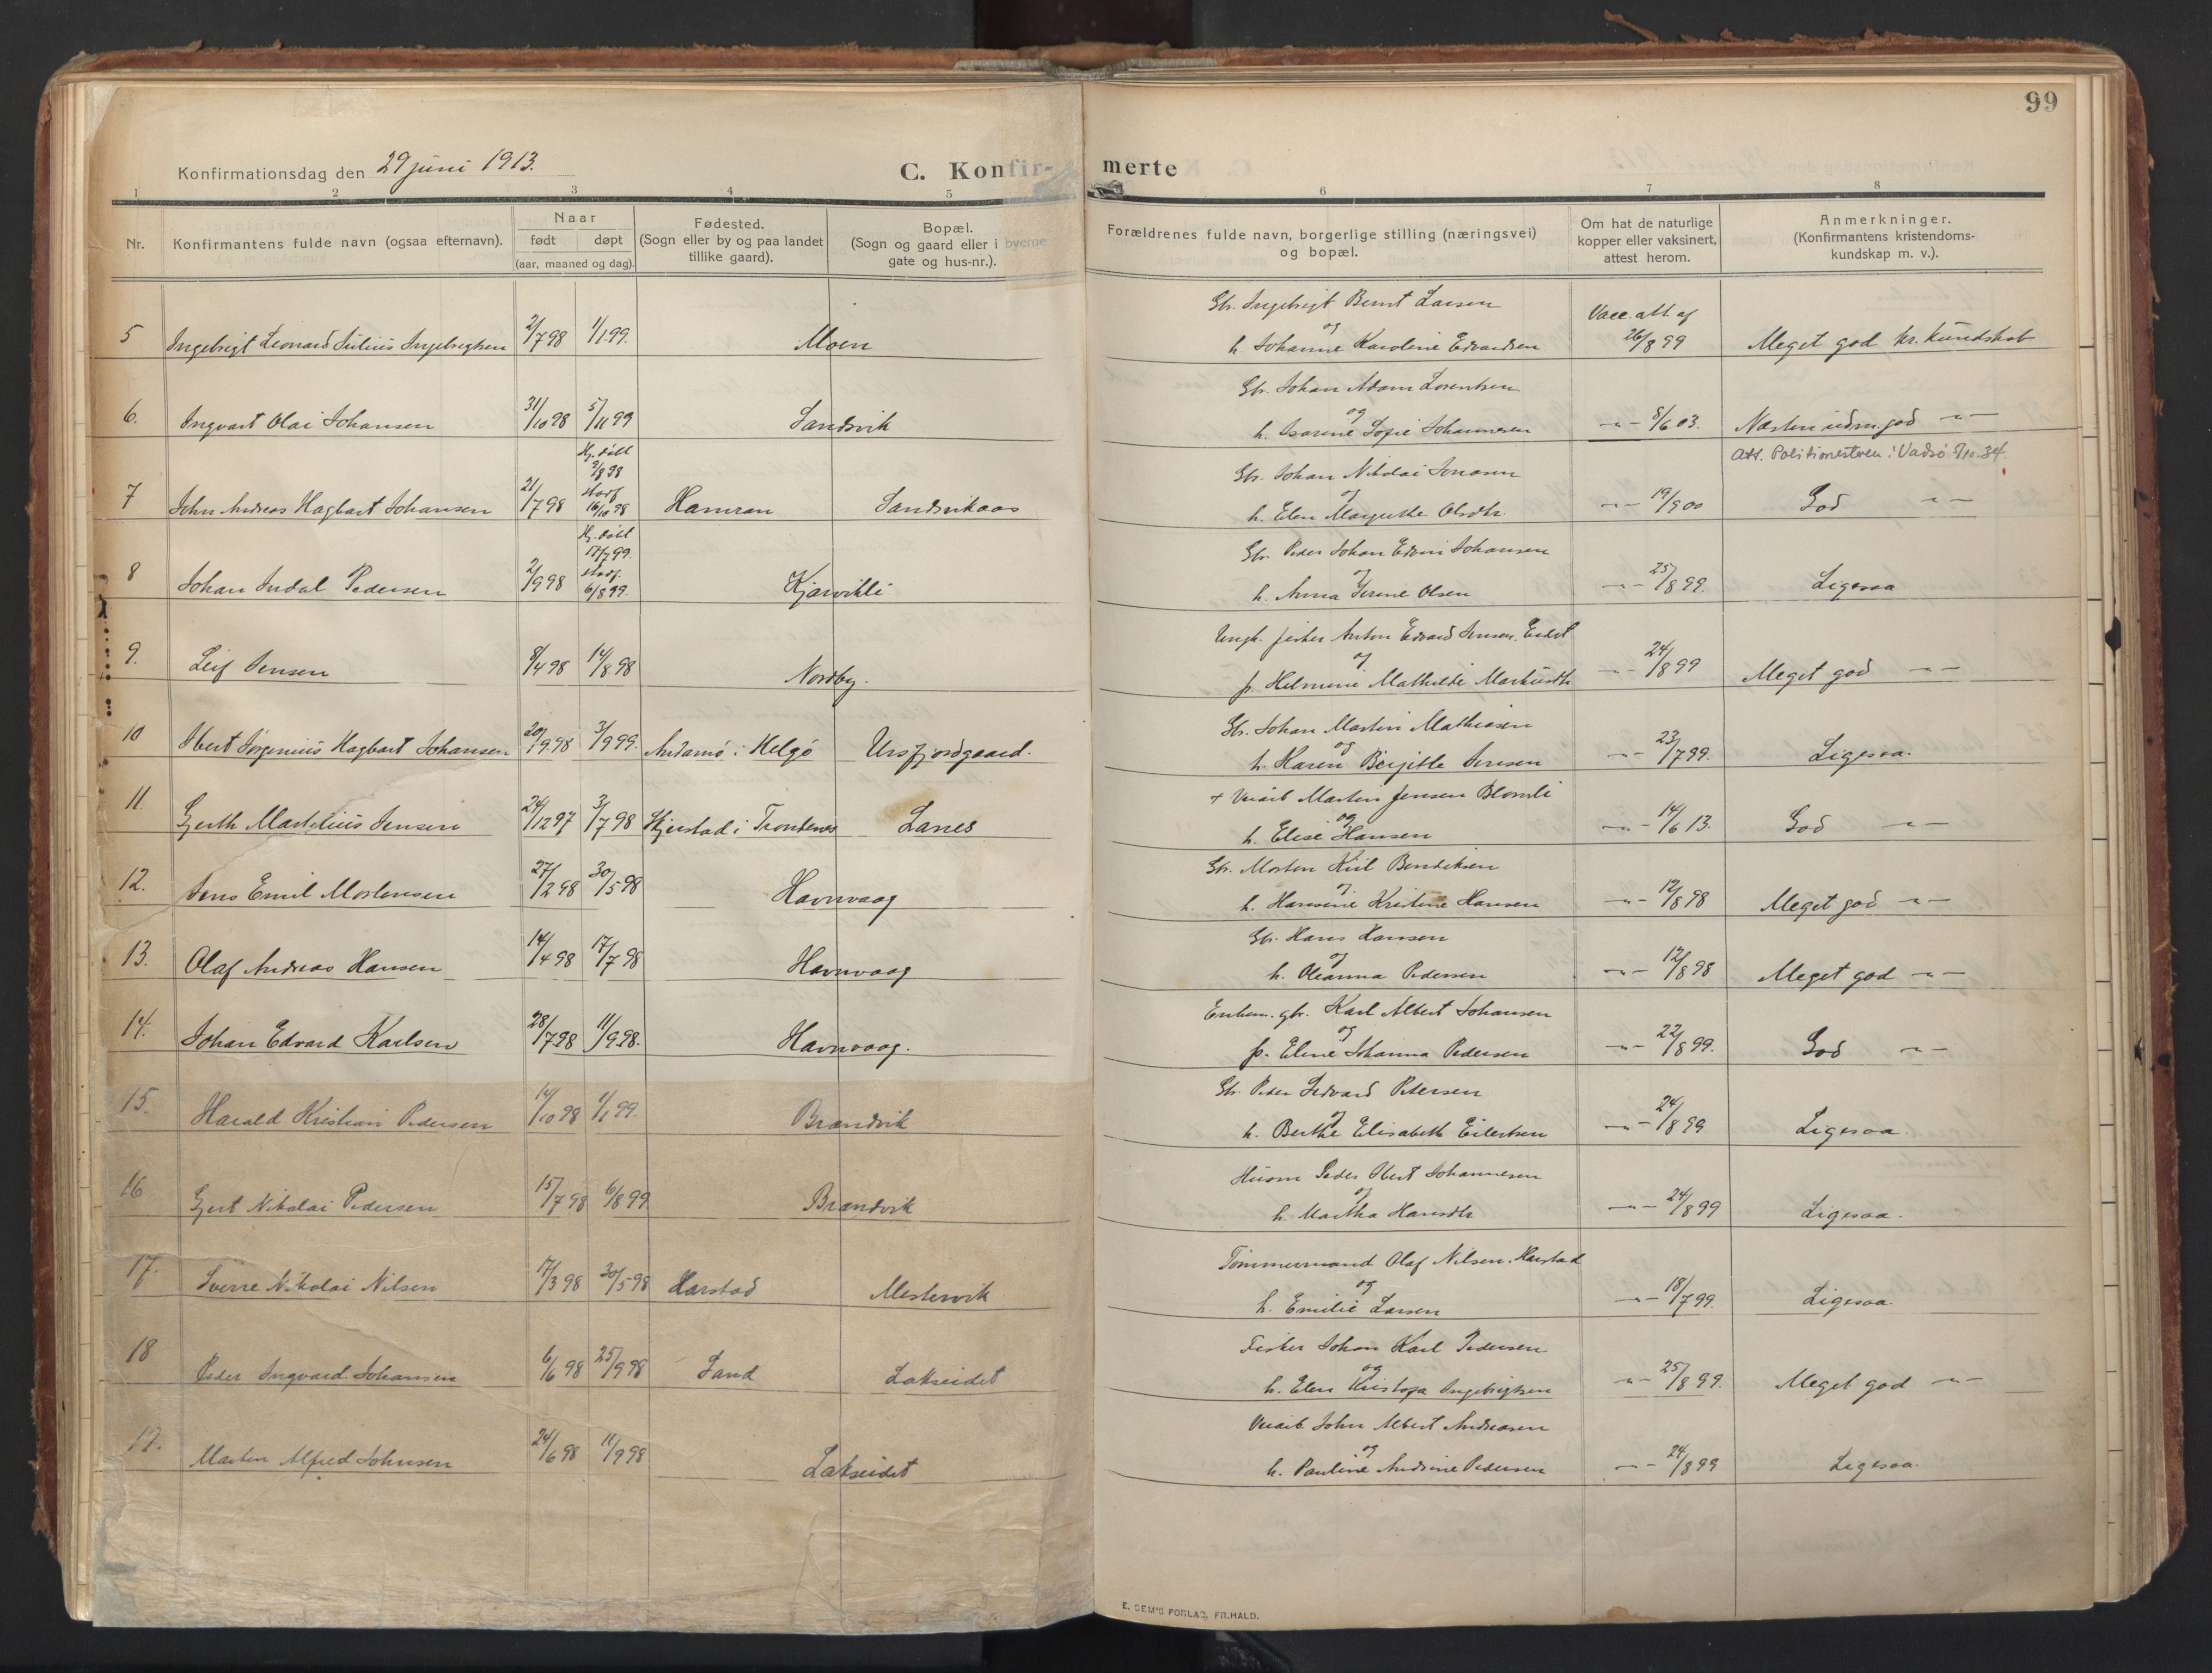 99
Konfirmationsdag den 29 juni 1913.
C. Konfir-
merte
1 2 3 4 5 6 7 8
Nr.
Konfirmantens fulde navn (ogsaa efternavn).
Naar
født døpt
(aar, maaned og dag).
Fødested.
(Sogn eller by og paa landet
tillike gaard).
Bopæl.
(Sogn og gaard eller i byerne
gate og hus-nr.).
Forældrenes fulde navn, borgerlige stilling (næringsvei)
og bopæl.
Om hat de naturlige
kopper eller vaksinert,
attest herom.
Anmerkninger.
(Konfirmantens kristendoms-
kundskap m. v.).
Gbr. Ingebrigt Bernt Larsen
og
5 Ingebrigt Leonard Julius Ingebrigtsen 2/7 98 1/1 99. Moen h. Johanne Karoline Edvardsen Vacc. att af 26/8 99 Meget god kr. kundskab
Gbr. Johan Adam Lorentsen
og
6. Ingvart Olai Johansen 31/10 98 5/11 99 Sandsvik h. Isarine Sofie Johannesen -"- 8/6 03. Næsten udm. god -"-
Att. Politimesteren i Vadsø 9/10-34.
Gbr. Johan Nikolai Jonasen
og
7 John Andreas Hagbart Johansen 21/7 98 Hj. døbt 9/8 98 stadf. 16/10 98 Hamran Sandsvikaas h. Elen Margrethe Olsdtr. -"- 19/9 00 God -"-
Gbr. Peder Johan Edvin Johansen
og
8 Johan Indal Pedersen 2/9 98 Hj. døbt 17/7 99. stadf. 6/8 99. Kjarvikli h. Anna Serine Olsen -"- 25/8 99. Ligesaa
Ungk. fisker Anton Edvard Jensen, Eidet
og
9. Leif Jensen 8/4 98 14/8 98 Nordby. p. Helmine Mathilde Markusdtr -"- 24/8 99 Meget god -"-
Gbr. Johan Martin Mathiasen
og
10 Obert Jørgenius Hagbart Johansen 20/9 98 3/9 99. Andamø i Helgø Ursfjordgaard. h. Karen Bergitte Jensen -"- 23/7 99. Ligesaa.
+ Veiarb Martin Jensen Blomli
og
11. Gjerth Martelius Jensen 24/12 97 3/7 98 Kjerstad i Trondenes Lanes h. Elise Hansen -"- 14/6 13. God -"-
Gbr. Morten Kiil Bendiksen
og
12. Jens Emil Mortensen 27/2 98 30/5 98 Havnvaag h. Hansine Kristine Hansen -"- 12/8 98 Meget god -"-
Gbr. Hans Hansen
og
13. Olaf Andreas Hansen 14/4 98 17/7 98 Havnvaag h. Oleanna Pedersen -"- 12/8 98 Meget god -"-
Enkem. gbr. Karl Albert Johansen
og
14. Johan Edvard Karlsen 28/7 98 11/9 98. Havnvaag. p. Eline Johanna Pedersen -"- 22/8 99. God -"-
Gbr. Peder Sedvard Petersen
og
15. Harald Kristian Pedersen 14/10 98 1/1 99. Brandvik h. Berthe Elisabeth Eilertsen -"- 24/8 99 Ligesaa.
Husm. Peder Obert Johannesen
og
16 Gjert Nikolai Pedersen 15/7 98 6/8 99 Brandvik h. Martha Hansdtr -"- 24/8 99 Ligesaa.
Tømmermand Olaf Nilsen, Harstad
og
17. Sverre Nikolai Nilsen 17/3 98 30/5 98 Harstad Mestervik h. Emilie Larsen -"- 18/7 99. Ligesaa.
Fisker Johan Karl Pedersen
og
18 Peder Ingvard Johansen 6/6 98 25/9 98 Sand Lakseidet h. Elen Kristofa Ingebrigtsen -"- 25/8 99. Meget god -"-
Veiarb. John Albert Andreasen
og
19. Marten Alfred Johnsen 24/6 98 11/9 98 Lakseidet h. Pauline Andrine Pedersen -"- 24/8 99 Ligesaa.
E. SEM'S FORLAG, FR.HALD.